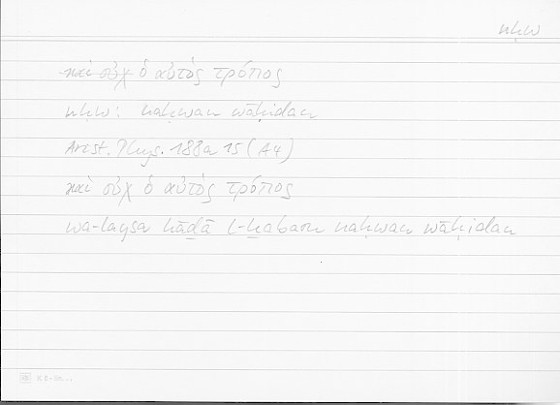 nḥw
καὶ οὐχ ὁ αὐτὸς τρόπος
nḥw: naḥwan wāḥidan
Arist. Phys. 188a 15 (A4)
καὶ οὐχ ὁ αὐτὸς τρόπος
wa-laysa hāḏā l-ẖabaru naḥwan wāḥidan